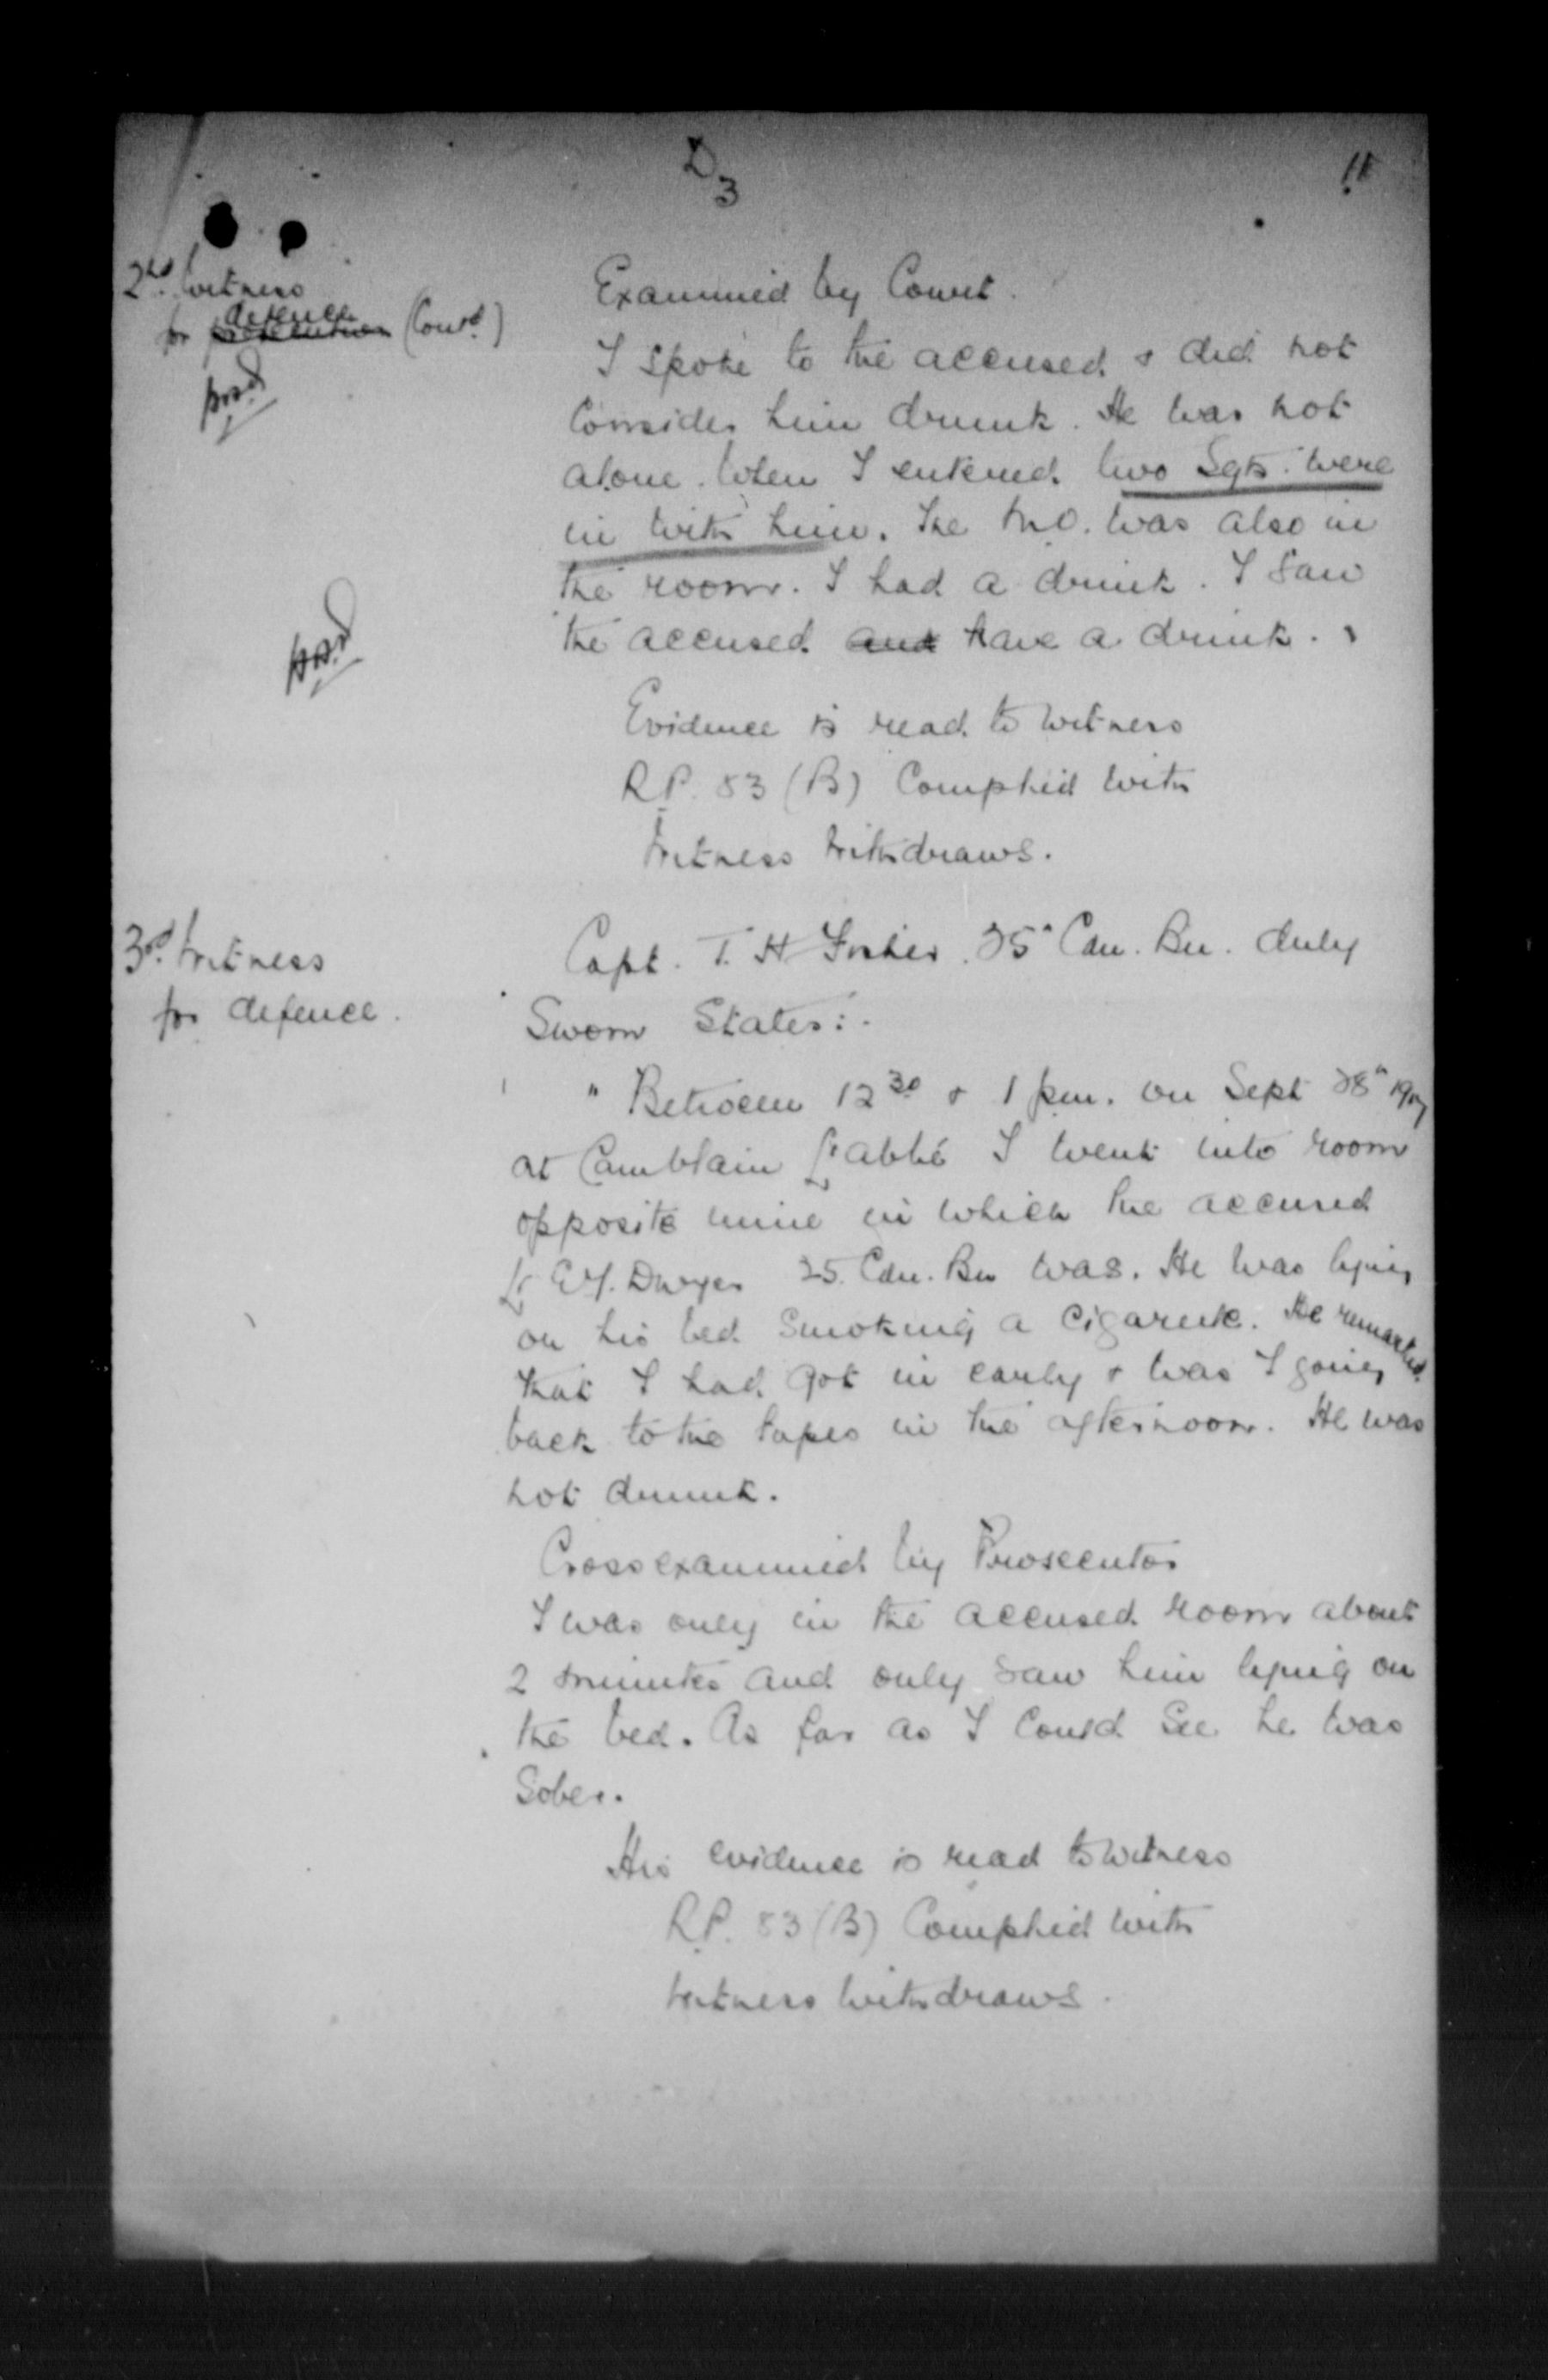 D3
11
2nd Witness
defence
for prosecution (Contd.)
Examined by Court.
I spoke to the accused & did not
consider him drunk. He was not
alone. When I entered two Sgts. were
in with him. The M.O. was also in
the room. I had a drink. I saw
the accused and have a drink.
Evidence is read to witness
R.P. 83 (B) Complied with
Witness withdraws.
3rd Witness
for defence.
Capt. T. H. 25th Can. Bn. duly
Sworn States:-
" Between 12 30 & 1 pm. on Sept 28th 1917
at Camblain L'abbé I went into room
opposite mine in which the accused
Lt. Dwyer 25. Cdn. Bn was. He was lying
on his bed smoking a cigarette. He remarked
that I had got in early & was I going
back to the tapes in the afternoon. He was
not drunk.
Cross examined by Prosecutor
I was only in the accused room about
2 minutes and only saw him lying on
the bed. As far as I could see he was
Sober.
His evidence is read to witness
R.P. 83 (B) Complied with
Witness withdraws.